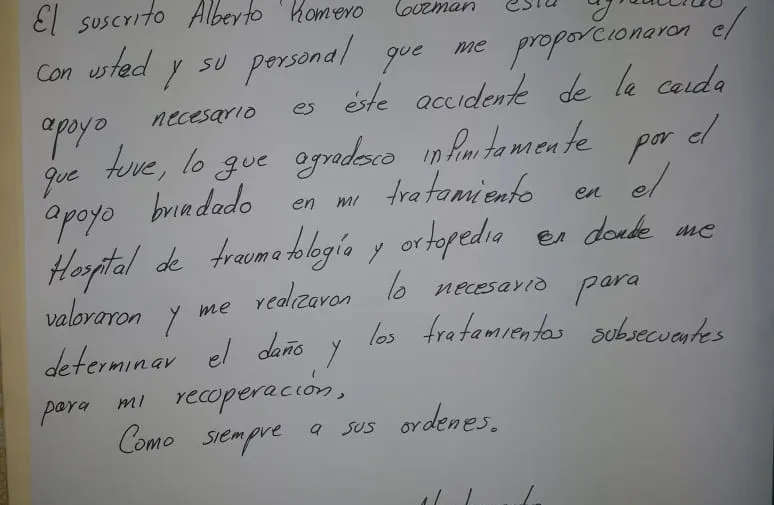 El suscrito Alberto Romero Guzmán está agradecido
con usted y su personal que me proporcionaron el
apoyo necesario es éste accidente de la caida
que tuve, lo que agradesco infinitamente por el
apoyo brindado en mi tratamiento en el
Hospital de traumatología y ortopedia en donde me
valoraron y me realizaron lo necesario para
determinar el daño y los tratamientos subsecuentes
para mi recoperación,
Como siempre a sus ordenes.